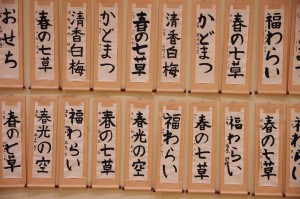 おせち
春の七草
清香白梅
かどまつ
春の七草
清香白梅
かどまつ
春の七草
福わらい
春の七草
春光の空
福わらい
春の七草
春光の空
福わらい
春の七草
福わらい
春の七草